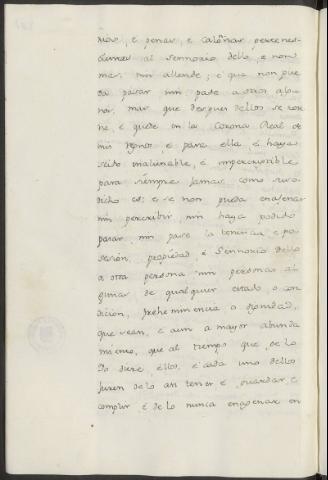 rias, é penas, é calõnias pertenes-
cientes al Sennorio dello, e non
mas, nin allende; é que non pue-
da pasar nin pase a otros algu-
nos, mas que despues dellos se torne
é quede en la Corona Real de
mis regnos é para ella é haya
seido inalienable, é imperscriptible
para siempre jamas como suso
dicho es; e se non pueda enagenar
nin percribir, nin haya podido
pasar nin pase la tenencia é po-
sesion, propiedad, é Sennorio dello
a otra persona nin personas al-
gunas de qualquier estado o con-
dicion, prehemminencia o dignidad,
que sean, é aun a mayor abunda-
miento, que al tiempo que gelo
Yo diere, ellos, é cada uno dellos
juren de lo asi tener é guardar, é
complir é de lo nunca enagenar en